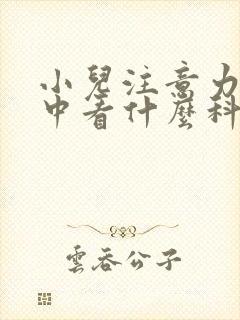 小兒注意力
中看什麼科
雲吞公子